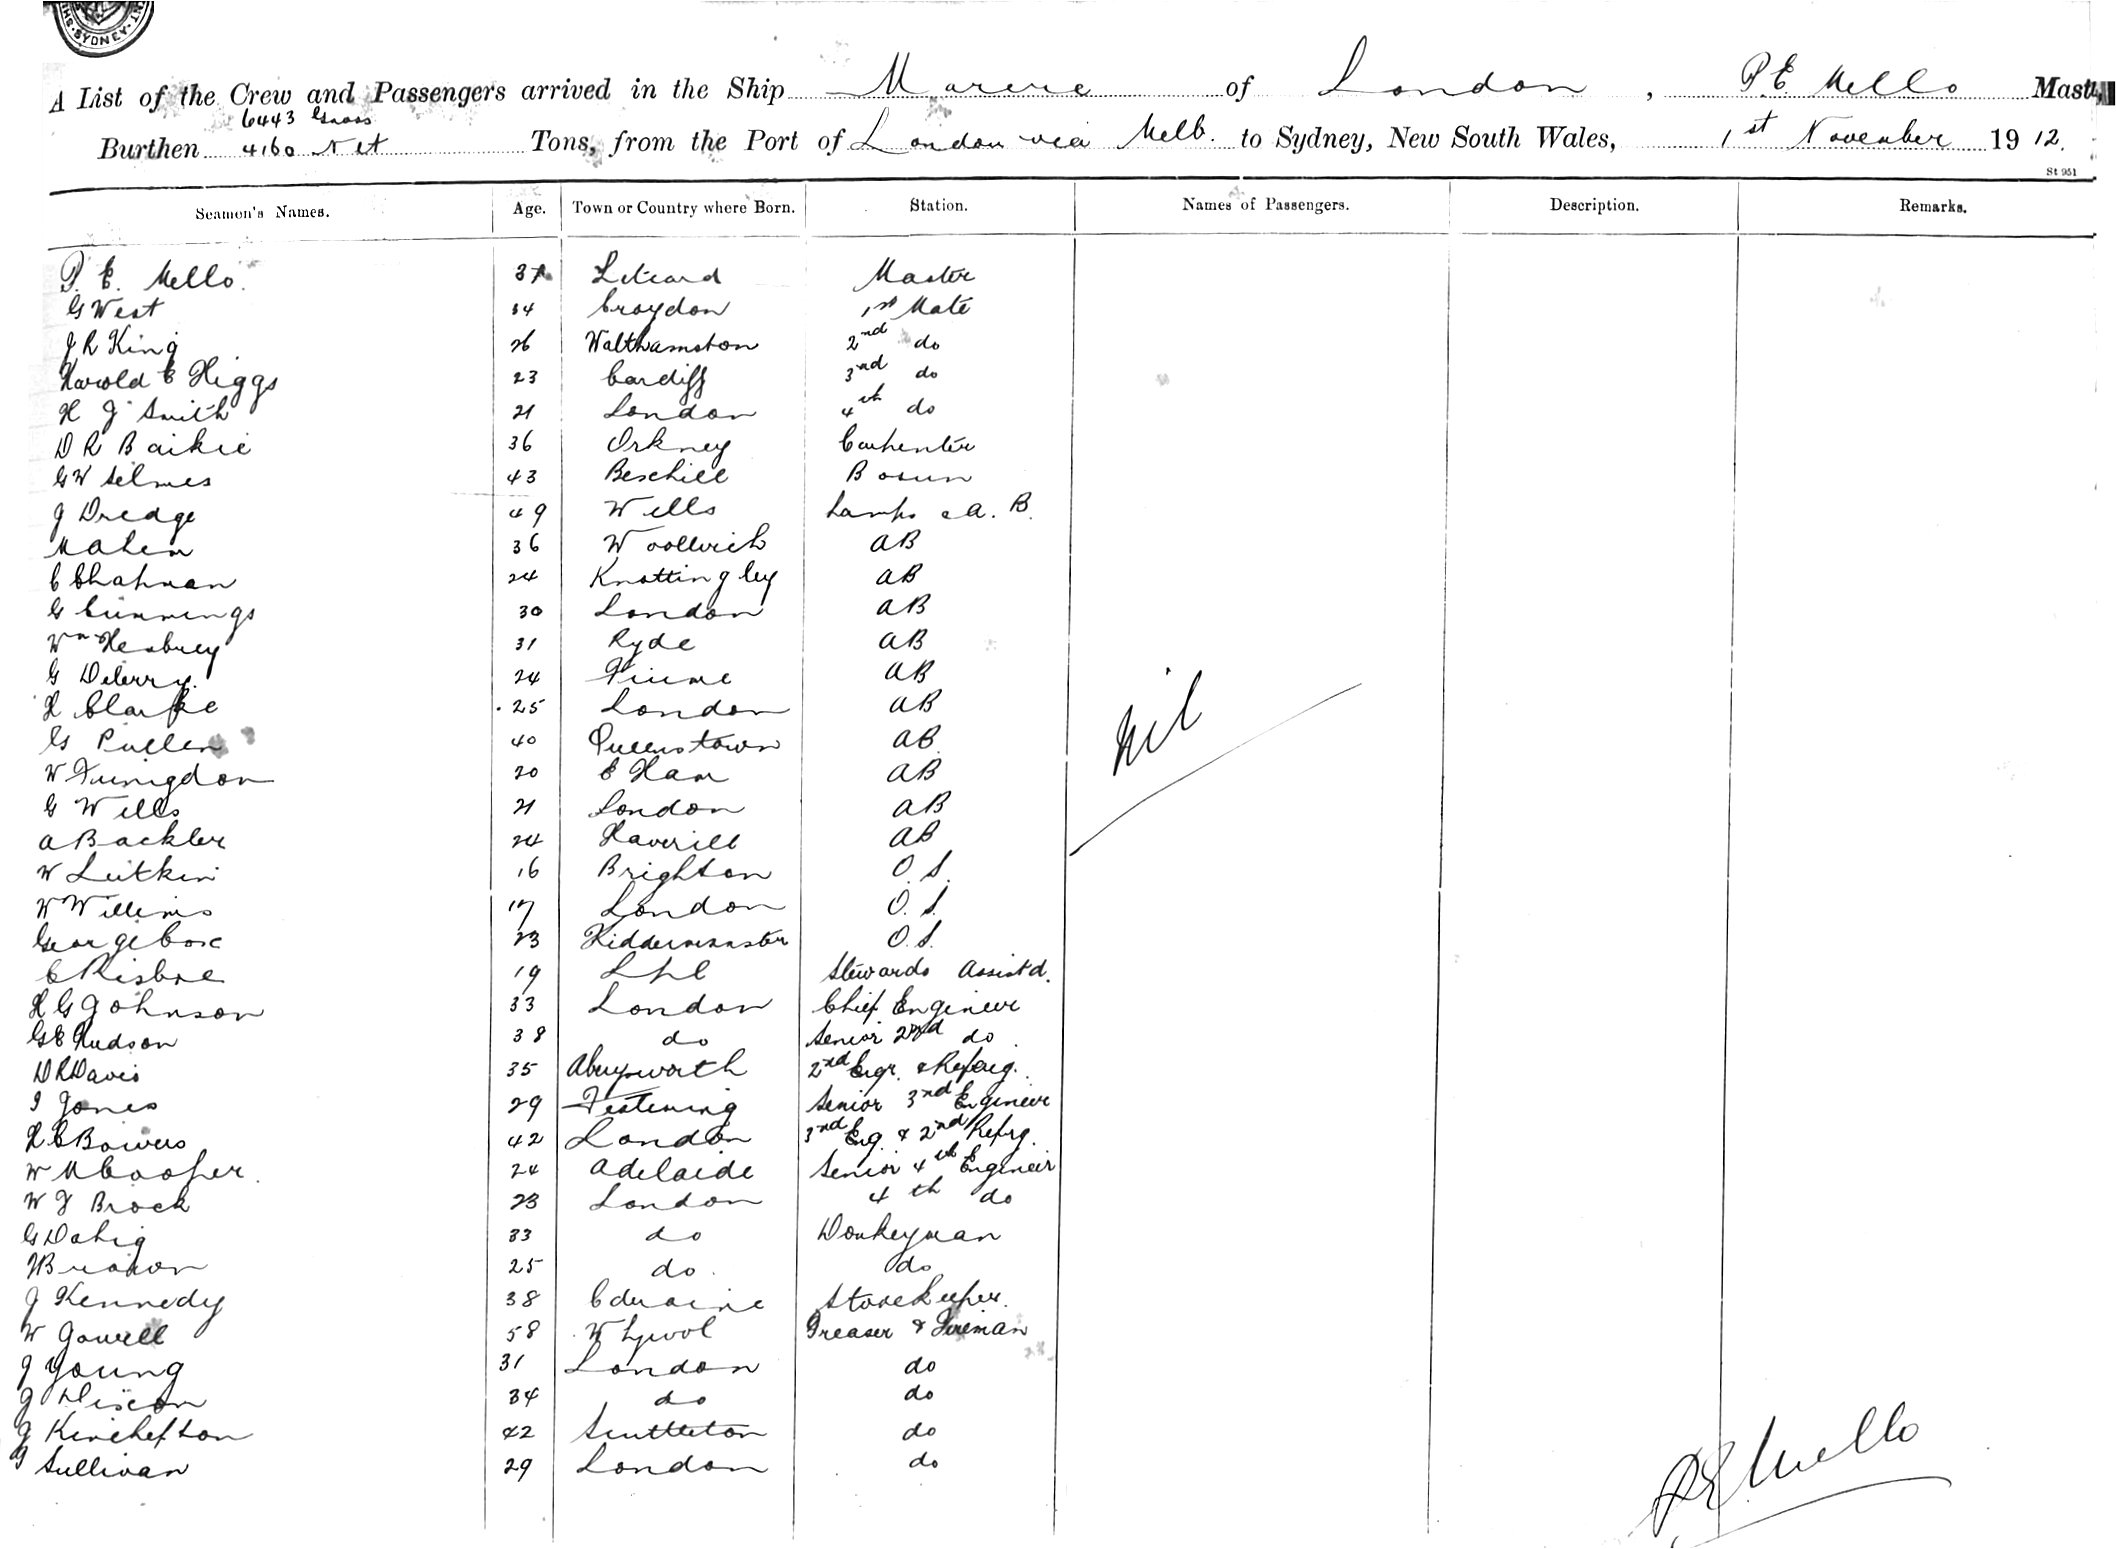 SYDNEY
A List of the Crew and Passengers arrived in the Ship Marere of London, P. E. Mello Master,
6443 Gross
Burthen 4160 Net Tons, from the Port of London via Melb. to Sydney, New South Wales, 1st November 1912.
St 951
Seamen's Names. Age. Town or Country where Born. Station. Names of Passengers. Description. Remarks.
P. E. Mello. Master
G West 34 Croydon 1st Mate
J R King 26 Walthamston 2nd do
Harold E Higgs 23 Cardiff 3rd do
H J Smith 21 London 4th do
D R Baikie 36 Orkney Carpenter
G W Selmes 43 Bexhill Bosun
J Dredge 49 Wells Lamps & A. B.
36 Woolwich AB
C Chapman 24 Knottingley AB
G Cummings 30 London AB
Wm 31 Ryde AB
G 24 Fiume AB
H Clarke 25 London AB
G Pullen 40 Queenstown AB
W 20 E Ham AB
G Wills 21 London AB
A Backler 24 Haverill AB
W 16 Brighton O. S.
W Willims 17 London O. S.
George Cox 23 Kidderminster O. S.
C Risboe 19 Lpl Stewards Assistd.
H G Johnson 33 London Chief Engineer
G E Hudson 38 do Senior 2nd do
D R Davis 35 2nd Engr. & Refrig.
I Jones 29 Senior 3rd Engineer
H C Bowers 42 London 3rd Eng. & 2nd Refrg.
W M Cooper. 24 Adelaide Senior 4th Engineer
W J Brock 23 London 4th do
G Dahig 33 do Donkeyman
25 do. do
J Kennedy 38 Storekeeper.
W Gowell 58 Greaser & Fireman
J Young 31 London do
J Dixon 34 do do
J 42 do
J Sullivan 29 London do
Nil
P E Mello